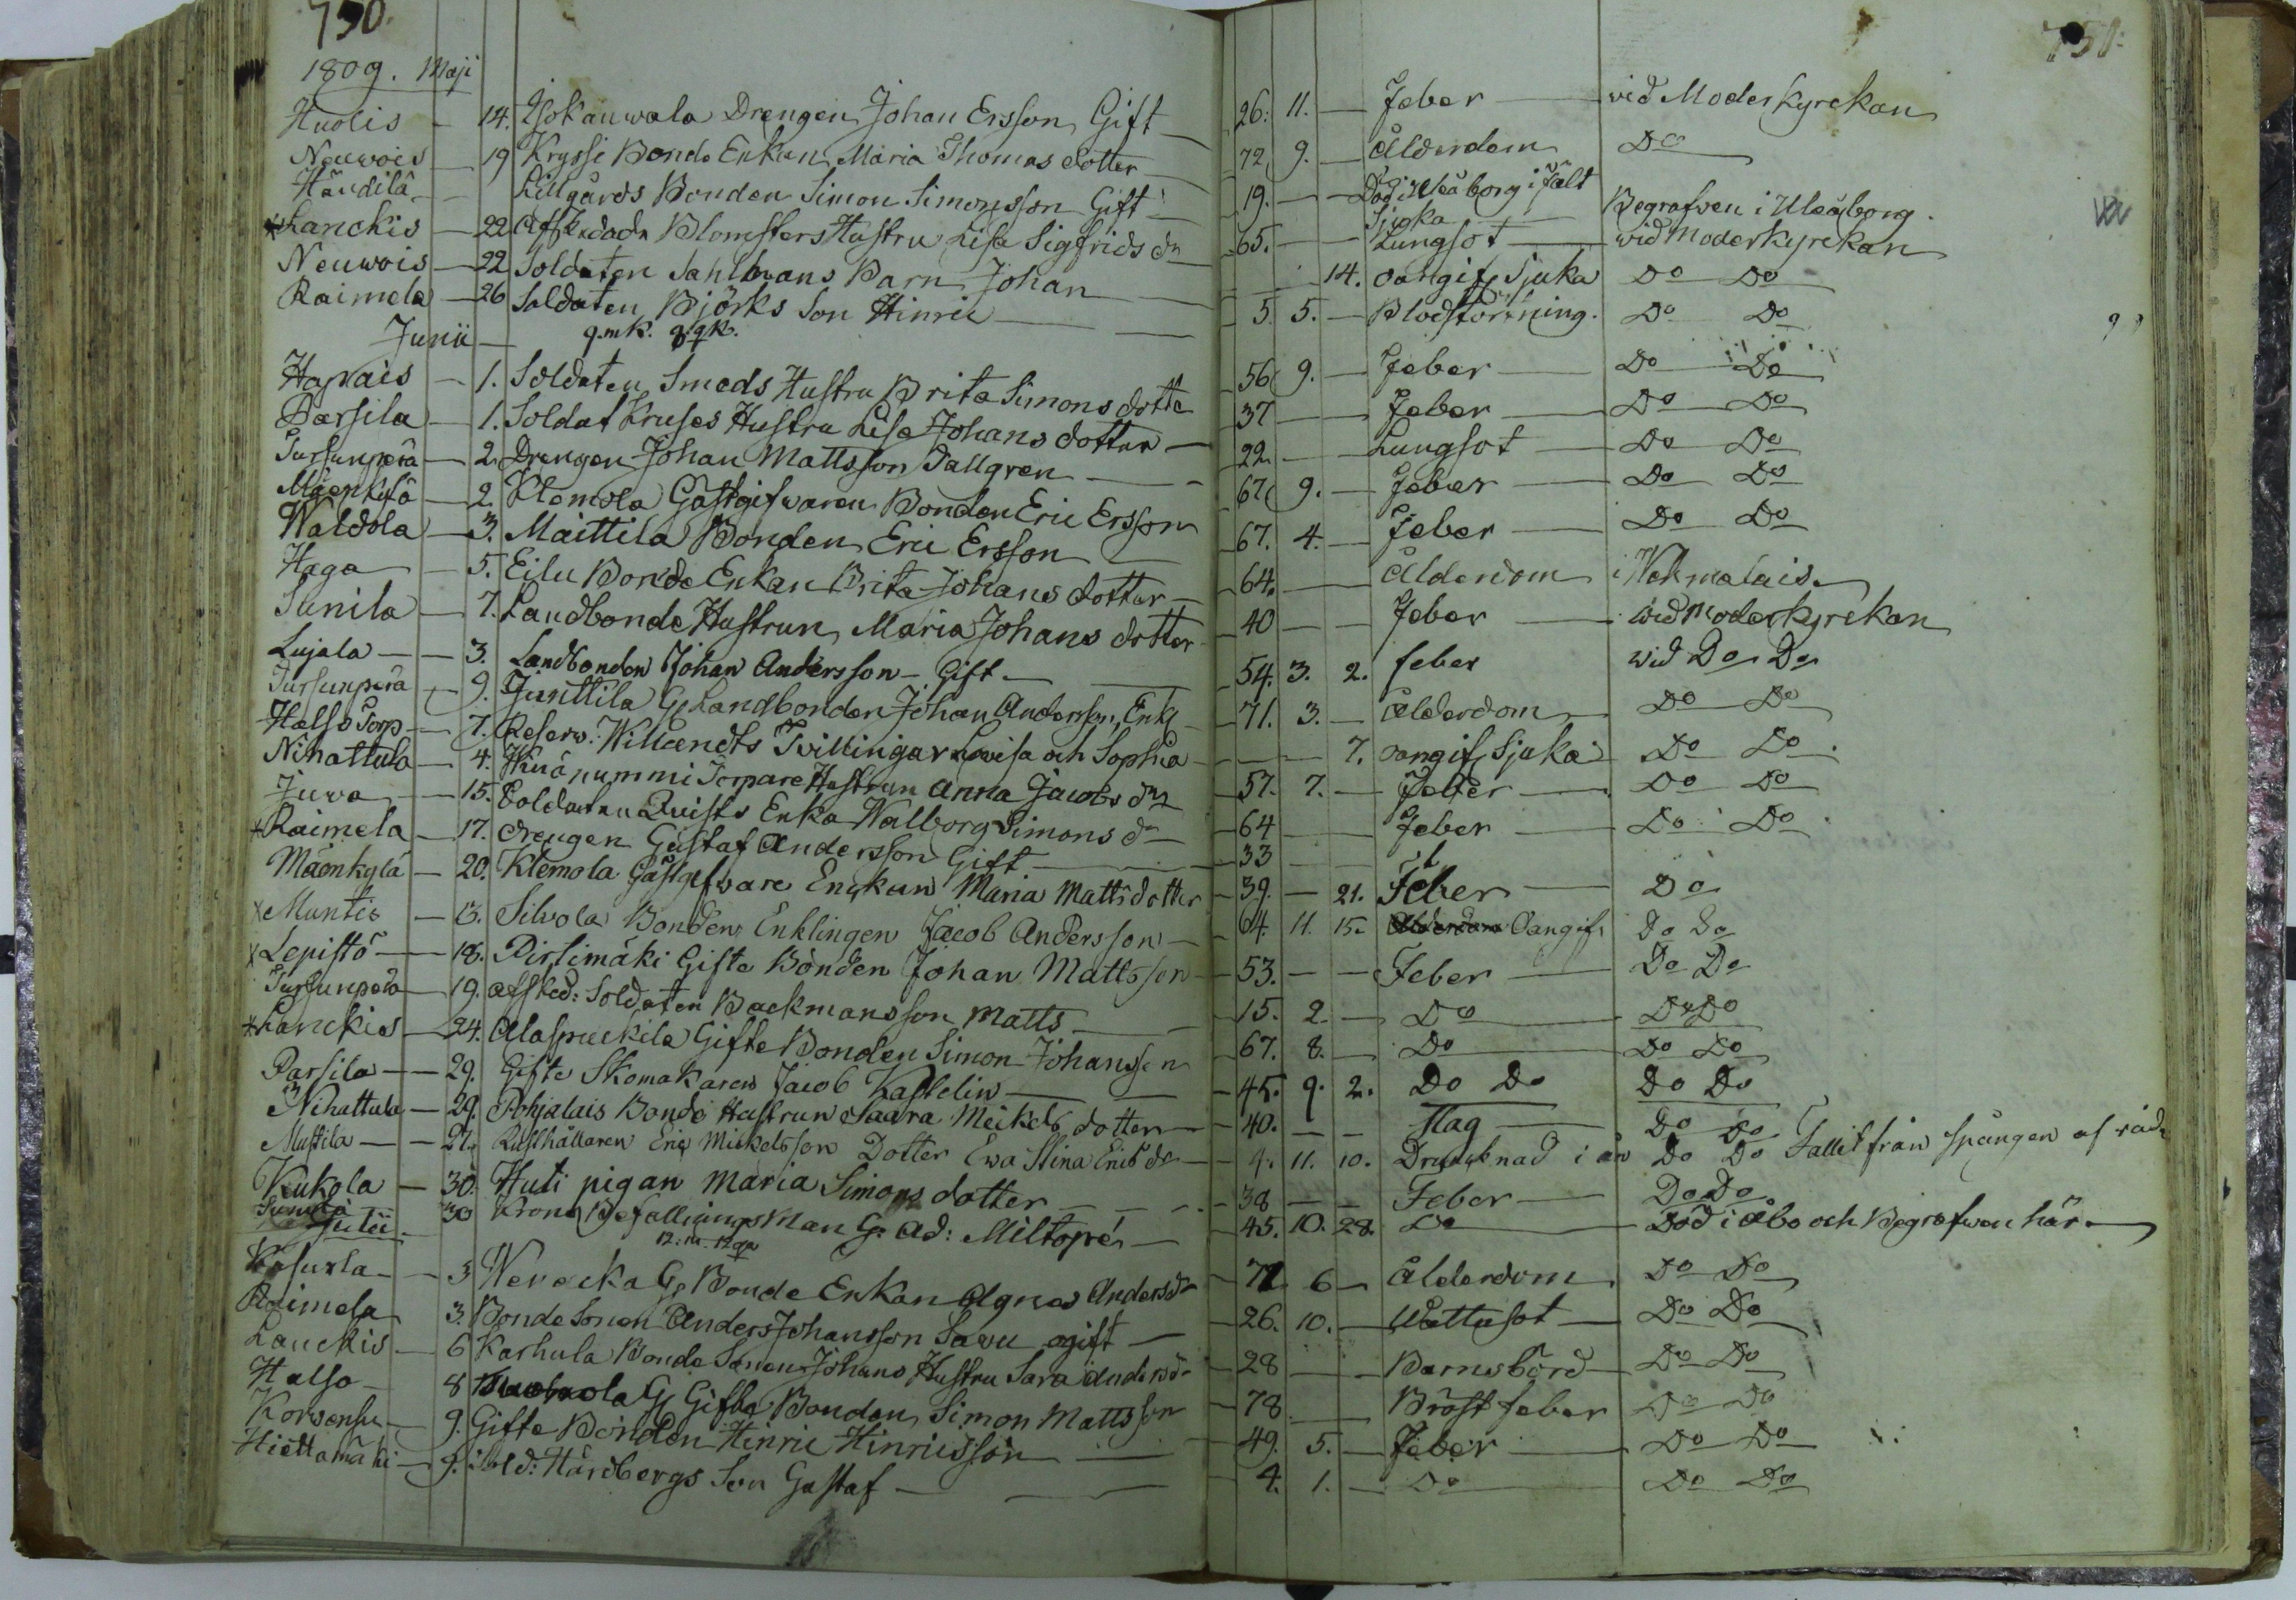 730.
751.
1809. Maji
Huolis 14. Isokauwala Drengen Johan Ersson Gift 26. 11. Feber wid Moderkyrckan
Neuwois 19 Kryssi Bonde Enkan Maria Thomas dotter 72 9. Ålderdom Do
Händilä Lillgårds Bonden Simon Simonsson Gift 19. Död i Uleåborg i Fält Sjuka Begrafven i Uleåborg.
* Lanckis 22 Afskedade Blomsters Hustru Lisa Sigfrids dr 65. Lungsot wid Moderkyrckan
Neuwois 22 Soldaten Sahlmans Barn Johan 14. oangif. Sjuka Do Do
Raimela 26 Soldaten Björks Son Hinric 5 5. Blodstörtning. Do Do
Junii 9.mk. 9.qk.
Haprais 1. Soldaten Smeds Hustru Brita Simons dotte 56 9. Feber Do Do
Parsila 1. Soldat Kruses Hustru Lisa Johans dotter 37 Feber Do Do
Tursunperä 2. Drengen Johan Mattsson Dallgren 22 Lungsot Do Do
Mäenkylä 2. Klemola Gästgifwaren Bonden Eric Ersson 67 9. Feber Do Do
Waldola 3. Maittila Bonden Eric Ersson 67. 4. Feber Do Do
Haga 5. Eilu Bonde Enkan Brita Johans dotter 64. Ålderdom i Nokmalais
Sunila 7. Landbonde Hustrun Maria Johans dotter 40 Feber wid Moderkyrckan
Lujala 3. Landbonden Johan Andersson Gift 54. 3. 2. feber wid Do Do
Tursunperä 9. Junttila G. Landbonden Johan Andersson, Enkl 71. 3. Ålderdom Do Do
Halso Torp 7. Reserv. Willandts Tvillingar Lovisa och Sophia 7. oangif Sjuka Do Do
Nihattula 4. Torpare Hustrun Anna Jacobs dr 57. 7. Feber Do Do
Juva 15. Soldaten Quists Enka Walborg Simons dr 64 Feber Do Do
* Raimela 17. drengen Gustaf Andersson Gift 33
Mäenkylä 20. Klemola Gästgifvare Enckan Maria Matts dotter 39. 21. Feber Do
x Muntis 13. Silvola Bonden Enklingen Jacob Andersson 64. 11. 15. Oangif. Do Do
x Lepistö 18. Pirlimäki Gifte Bonden Johan Mattsson 53. Feber Do Do
Tursunperä 19. afsked: Soldaten Backmans son Matts 15. 2 Do Do Do
* Lanckis 24. Alaspruckila Gifte Bonden Simon Johansson 67. 8. Do Do Do
Parsila 29. Gifte Skomakaren Jacob Kastelin 45. 9. 2. Do Do Do Do
Nihattula 29. Pohjalais Bonde Hustrun Saara Meickels dotter 40. Slag Do Do
Mustila 27. Rusthållaren Eric Mickelsson Dotter Ewa Stina Erics dr 4. 11. 10. Drunknad i ån Do Do Fallit från spången af våda
Kukola 30. Huti pigan Maria Simons dotter 38 Feber Do Do
Sunila 30 Krono Befallningsman G: Ad: Miltopé 45. 10. 28. Do Död i Åbo och Begrafwen här.
Julii. 12: m. 12 qv
3 Wenocka G. Bonde Enkan Agnes Anders dr 71 6 Ålderdom Do Do
Raimela 3. Bonde Sonen Anders Johansson Savu ogift 26. 10. Wattusot Do Do
Lanckis 6 Karhula Bonde Sonen Johans Hustru Sara Anders dr 28 Barnsbörd Do Do
Halso 8 G. Gifte Bonden Simon Mattsson 78 Bröst feber Do Do
Korvensu 9. Gifte Bonden Hinric Hinricsson 49. 5. Feber Do Do
Hiettamäki 9. Sold: Hårdbergs Son Gustaf 4. 1. Do Do Do